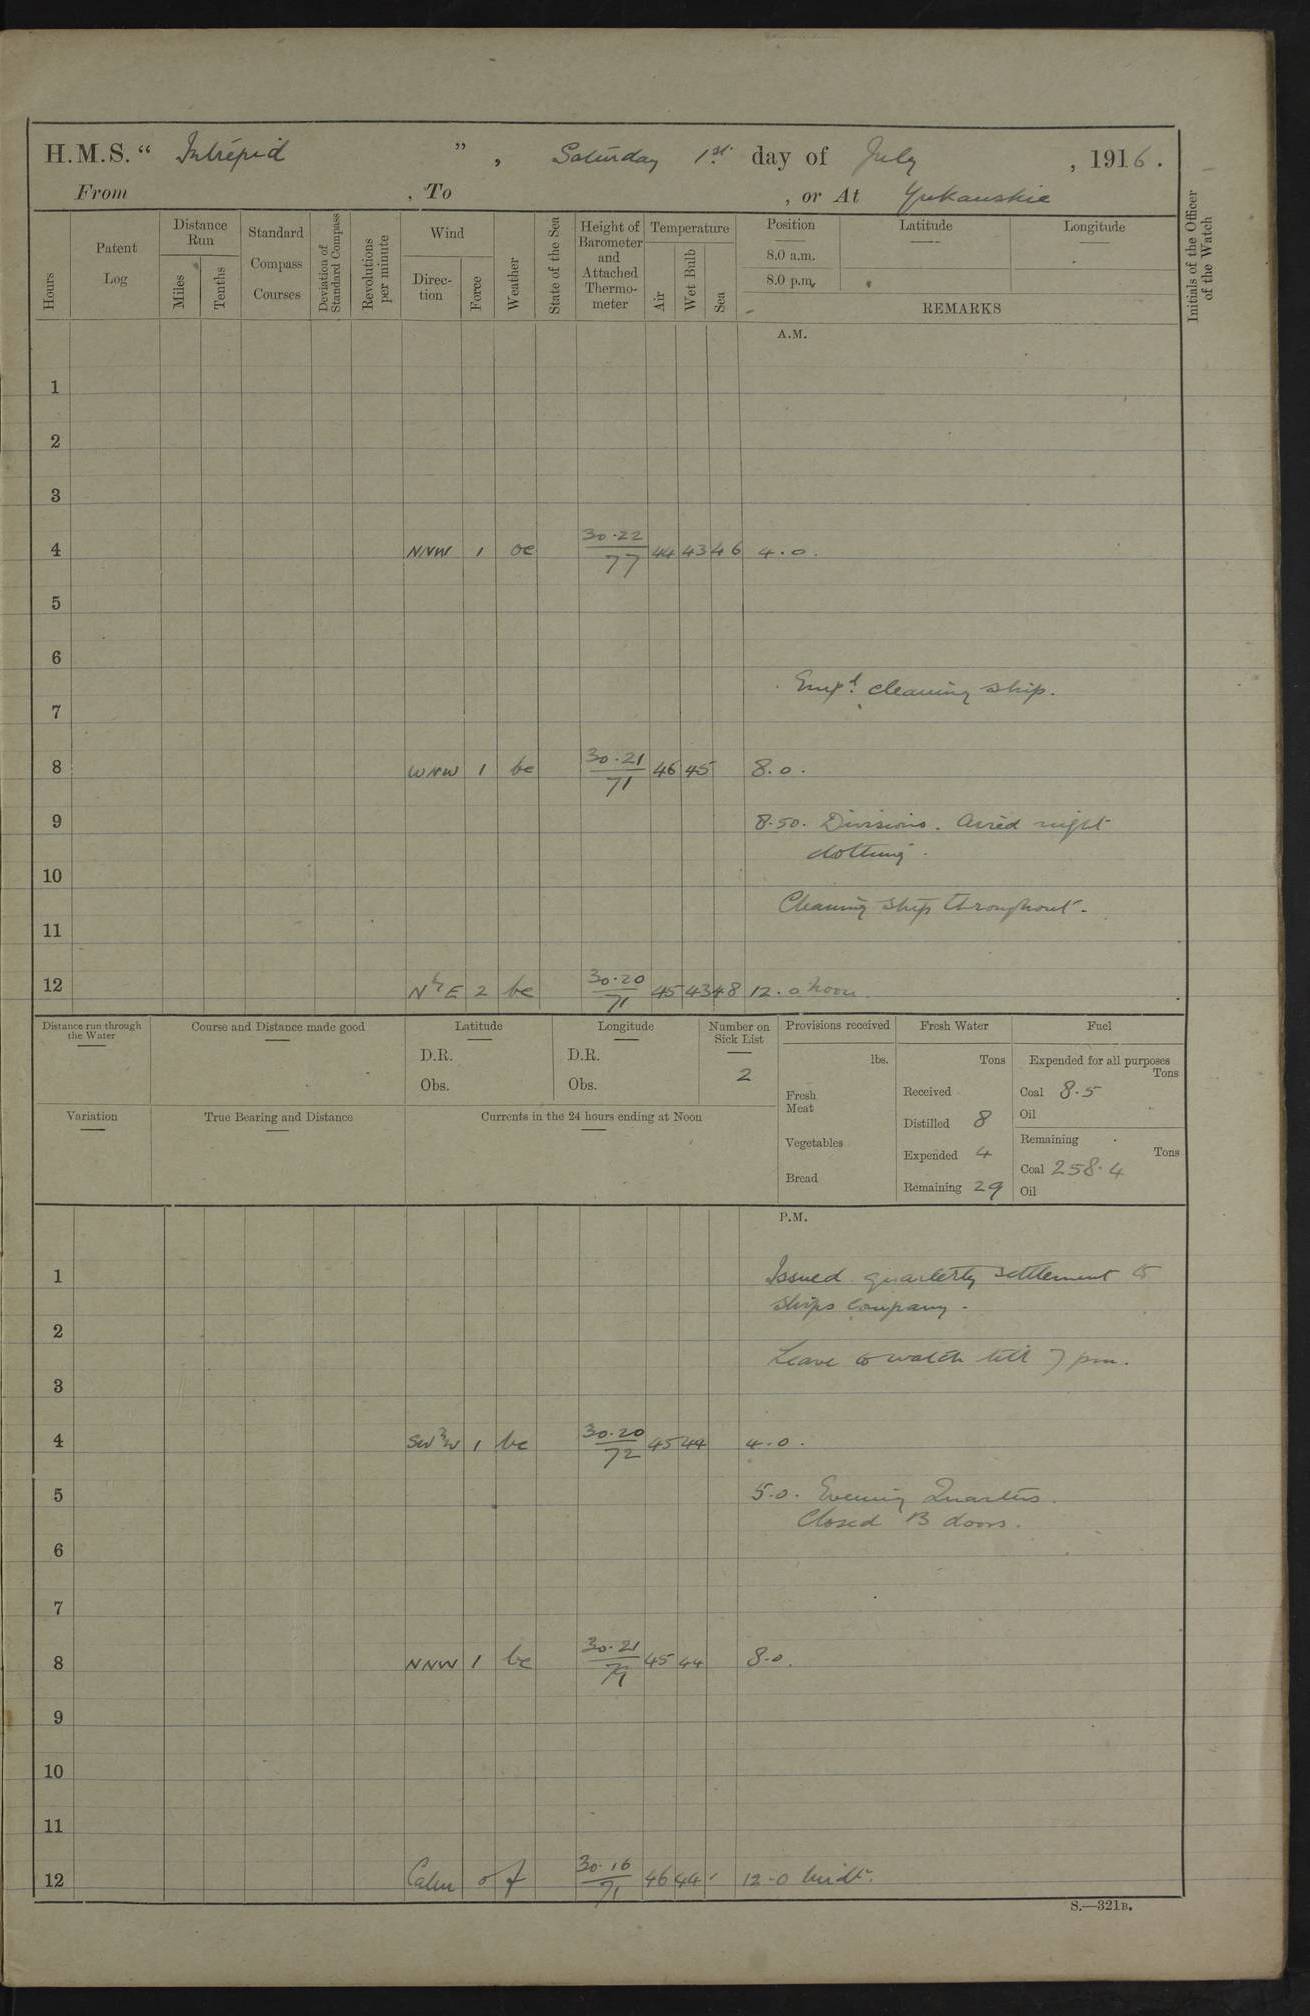 H.M.S. " Intrepid " , Saturday 1st. day of July , 1916.
From , To , or At Yukanskie
Hours
Patent Log
Distance Run
Miles
Tenths
Standard Compass Courses
Deviation of Standard Compass
Revolutions per minute
Wind
Direction
Force
Weather
State of the Sea
Height of Barometer and Attached Thermometer
Temperature
Air
Wet Bulb
Sea
Position
8.0 a.m.
8.0 p.m.
Latitude
Longitude
REMARKS
Initials of the Officer of the Watch
A.M.
1
2
3
4 NNW 1 bc 30.22/77 44 43 46 4.0.
5
6
Empd. cleaning ship.
7
8 WNW 1 bc 30.21/71 46 45 8.0.
9 8.50. Divisions. Aired night
clothing.
10
Cleaning ship throughout.
11
12 NbyE 2 bc 30.20/71 45 43 48 12.0 noon.
Distance run through the Water
Course and Distance made good
Latitude
D.R.
Obs.
Longitude
D.R.
Obs.
Number on Sick List
2
Provisions received
lbs.
Fresh Meat
Vegetables
Bread
Fresh Water
Tons
Received
Distilled 8
Expended 4
Remaining 29
Fuel
Expended for all purposes
Tons
Coal 8.5
Oil
Remaining
Tons
Coal 258.4
Oil
Variation
True Bearing and Distance
Currents in the 24 hours ending at Noon
P.M.
1 Issued quarterly settlement to
ships company.
2
Leave to watch till 7 pm.
3
4 SWbyW 1 bc 30.20/72 45 44 4.0.
5 5.0. Evening Quarters.
Closed B doors.
6
7
8 NNW 1 bc 30.21/71 45 44 8.0.
9
10
11
12 Calm 0 f 30.16/71 46 44 12.0 midt.
S.—321B.